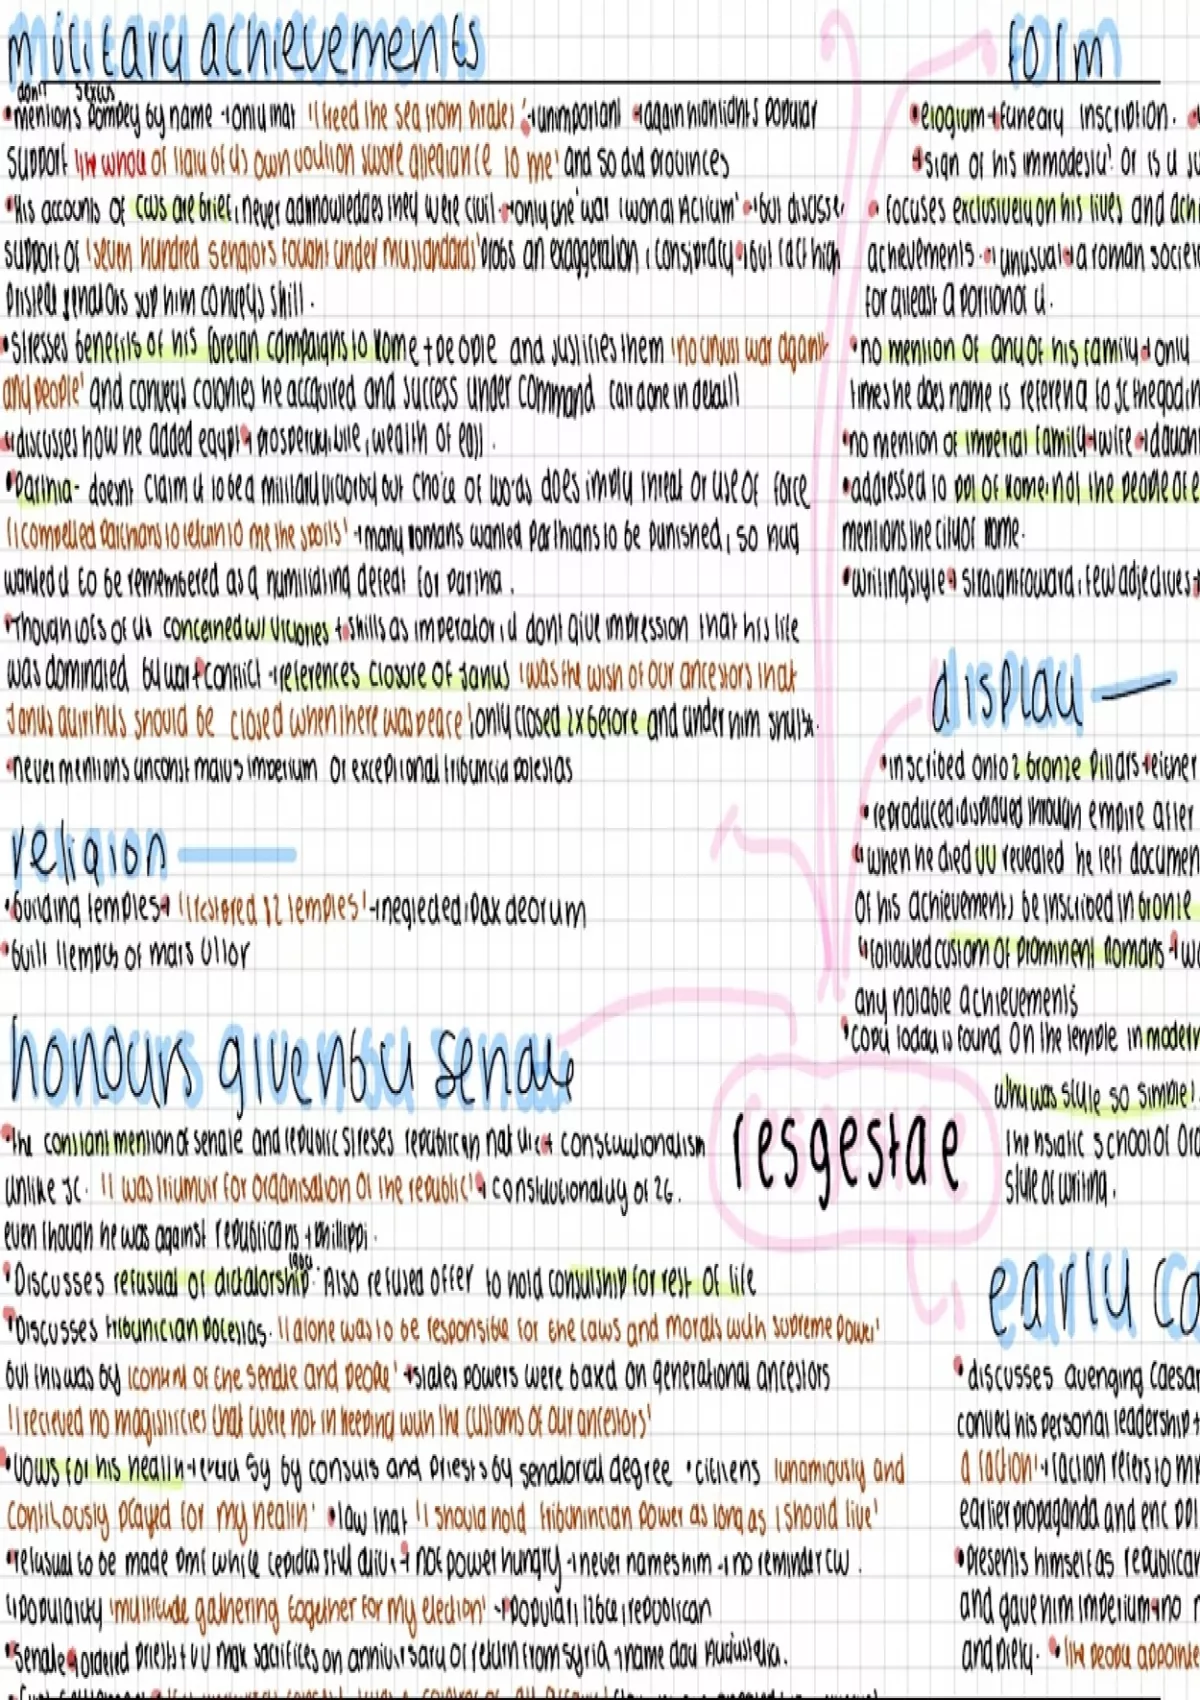 military achievements
don't sextus
•mentions pompey by name → only that 'I freed the sea from pirates' → unimportant → again highlights popular
support 'the whole of italy of its own volition swore allegiance to me' and so did provinces
•His accounts of CWs are brief, never acknowledges they were civil → only one 'war I won at Actium' • but discusses
support of 'seven hundred senators fought under my standards' probs an exaggeration, conspiracy • but fact high
senators sup him conveys skill.
•stresses benefits of his foreign campaigns to Rome + people and justifies them 'no unjust war against
any people' and conveys colonies he accquired and success under command
discusses how he added egypt → wealth of
•Parthia - doesnt claim it to be a military victory but choice of words does imply threat or use of force
'I compelled Parthians to return to me the spoils' → many romans wanted Parthians to be punished, so
wanted it to be remembered as a humiliating defeat for Parthia.
•Though lots of it is concerned w/ victories + skills as imperator it dont give impression that his life
was dominated by war + conflict → references closure of Janus 'it was the wish of our ancestors that
Janus quirinus should be closed when there was peace' only closed 2x before and under him
•never mentions unconst maius imperium or exceptional tribuncia potestas
religion
•building temples → 'I restored 82 temples' → neglected, pax deorum
•built temple of mars Ultor
honours given by senate
•The constant mention of senate and republic streses republican nature + constitutionalism
unlike JC. 'I was triumvir for organisation of the republic' → constitutionality of 2
even though he was against republicans + phillippi.
•Discusses refusual of dictatorship. Also refused offer to hold consulship for rest of life
•Discusses tribunician potestas. 'I alone was to be responsible for the laws and morals with supreme power'
but this was by 'consent of the senate and people' → states powers were based on generational ancestors
'I recieved no magistricies that were not in keeping with the customs of our ancestors'
•Vows for his health → every 5y by consuls and priests by senatorial degree •citizens 'unamiously and
contilously prayed for my health' • law that 'I should hold tribunincian power as long as I should live'
•refusual to be made PM while Lepidus still alive → not power hungry → never names him → no reminder CW.
popularity 'multitude gathering together for my election' → popular, republican
•Senate → ordered priests + VV max sacrifices on annivirsary of return from Syria → name day Augustalia.
resgestae
form
•elogium → funeary inscription.
→ sign of his immodesty? Or is it
• focuses exclusively on his lives and
achievements. • unusual → a roman
for atleast a portion of it.
•no mention of any of his family → only
times he does name is reference to JC the god
•no mention of imperial family → wife →
•addressed to ppl of Rome, not the people of
mentions the city of Rome.
•writing style → straightfoward, few adjectives
display
•inscribed onto 2 bronze pillars → either
•reproduced, displayed through empire after
when he died VV revealed he left document
of his achievements be inscribed in bronze
followed custom of prominent Romans →
any notable achievements
•copy today is found on the temple in modern
why was style so simple?
The school of
style of writing.
early
•discusses avenging Caesar
convey his personal leadership
a faction' → faction refers to
earlier propaganda and
•presents himself as republican
and gave him imperium → no
and piety. • 'the people